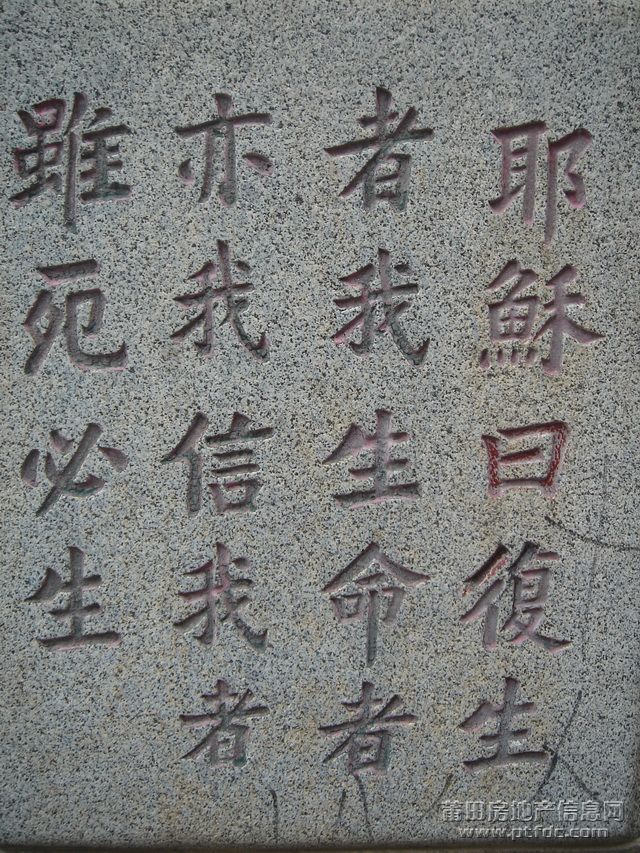 耶穌曰復生
者我生命者
亦我信我者
雖死必生
莆田房地产信息网
www.ptfdc.com